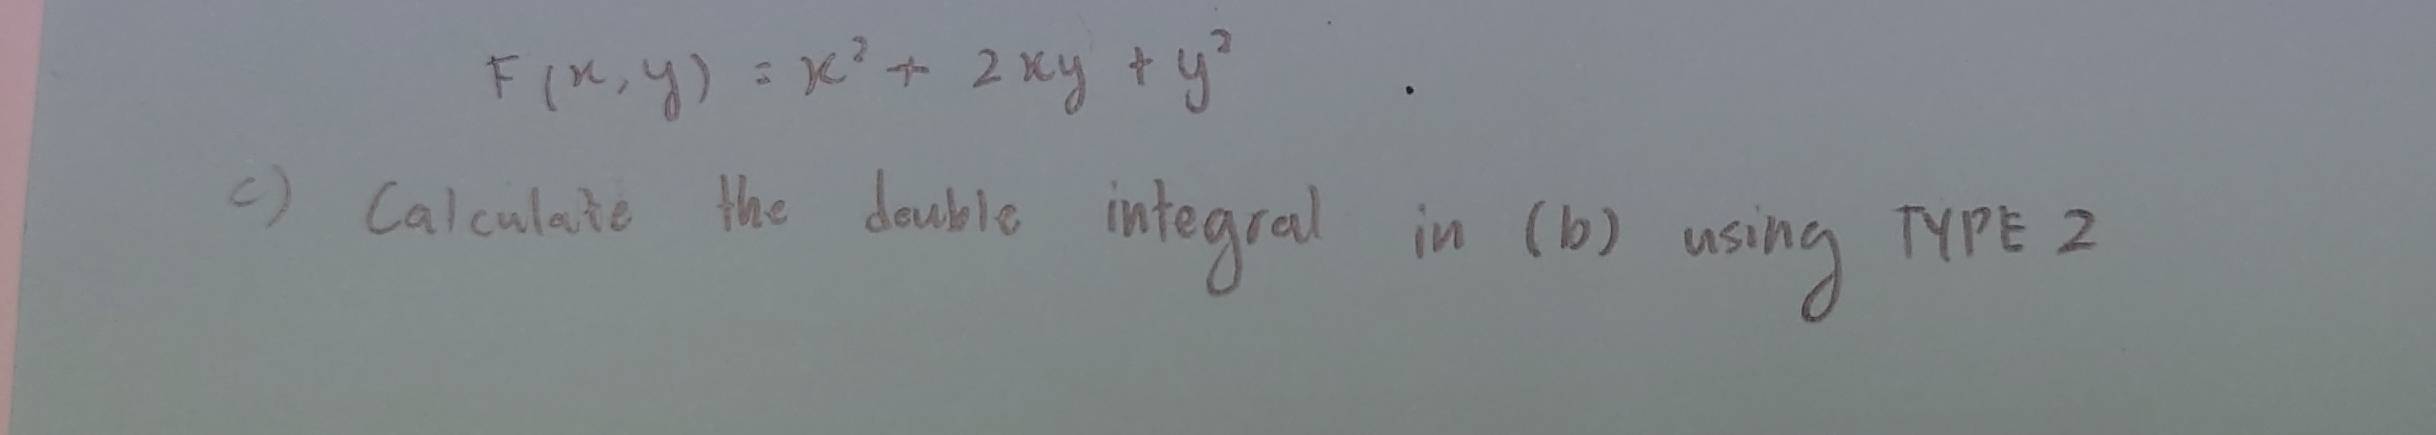 F(x,y) = x² + 2xy + y²
c) Calculate the double integral in (b) using TYPE 2